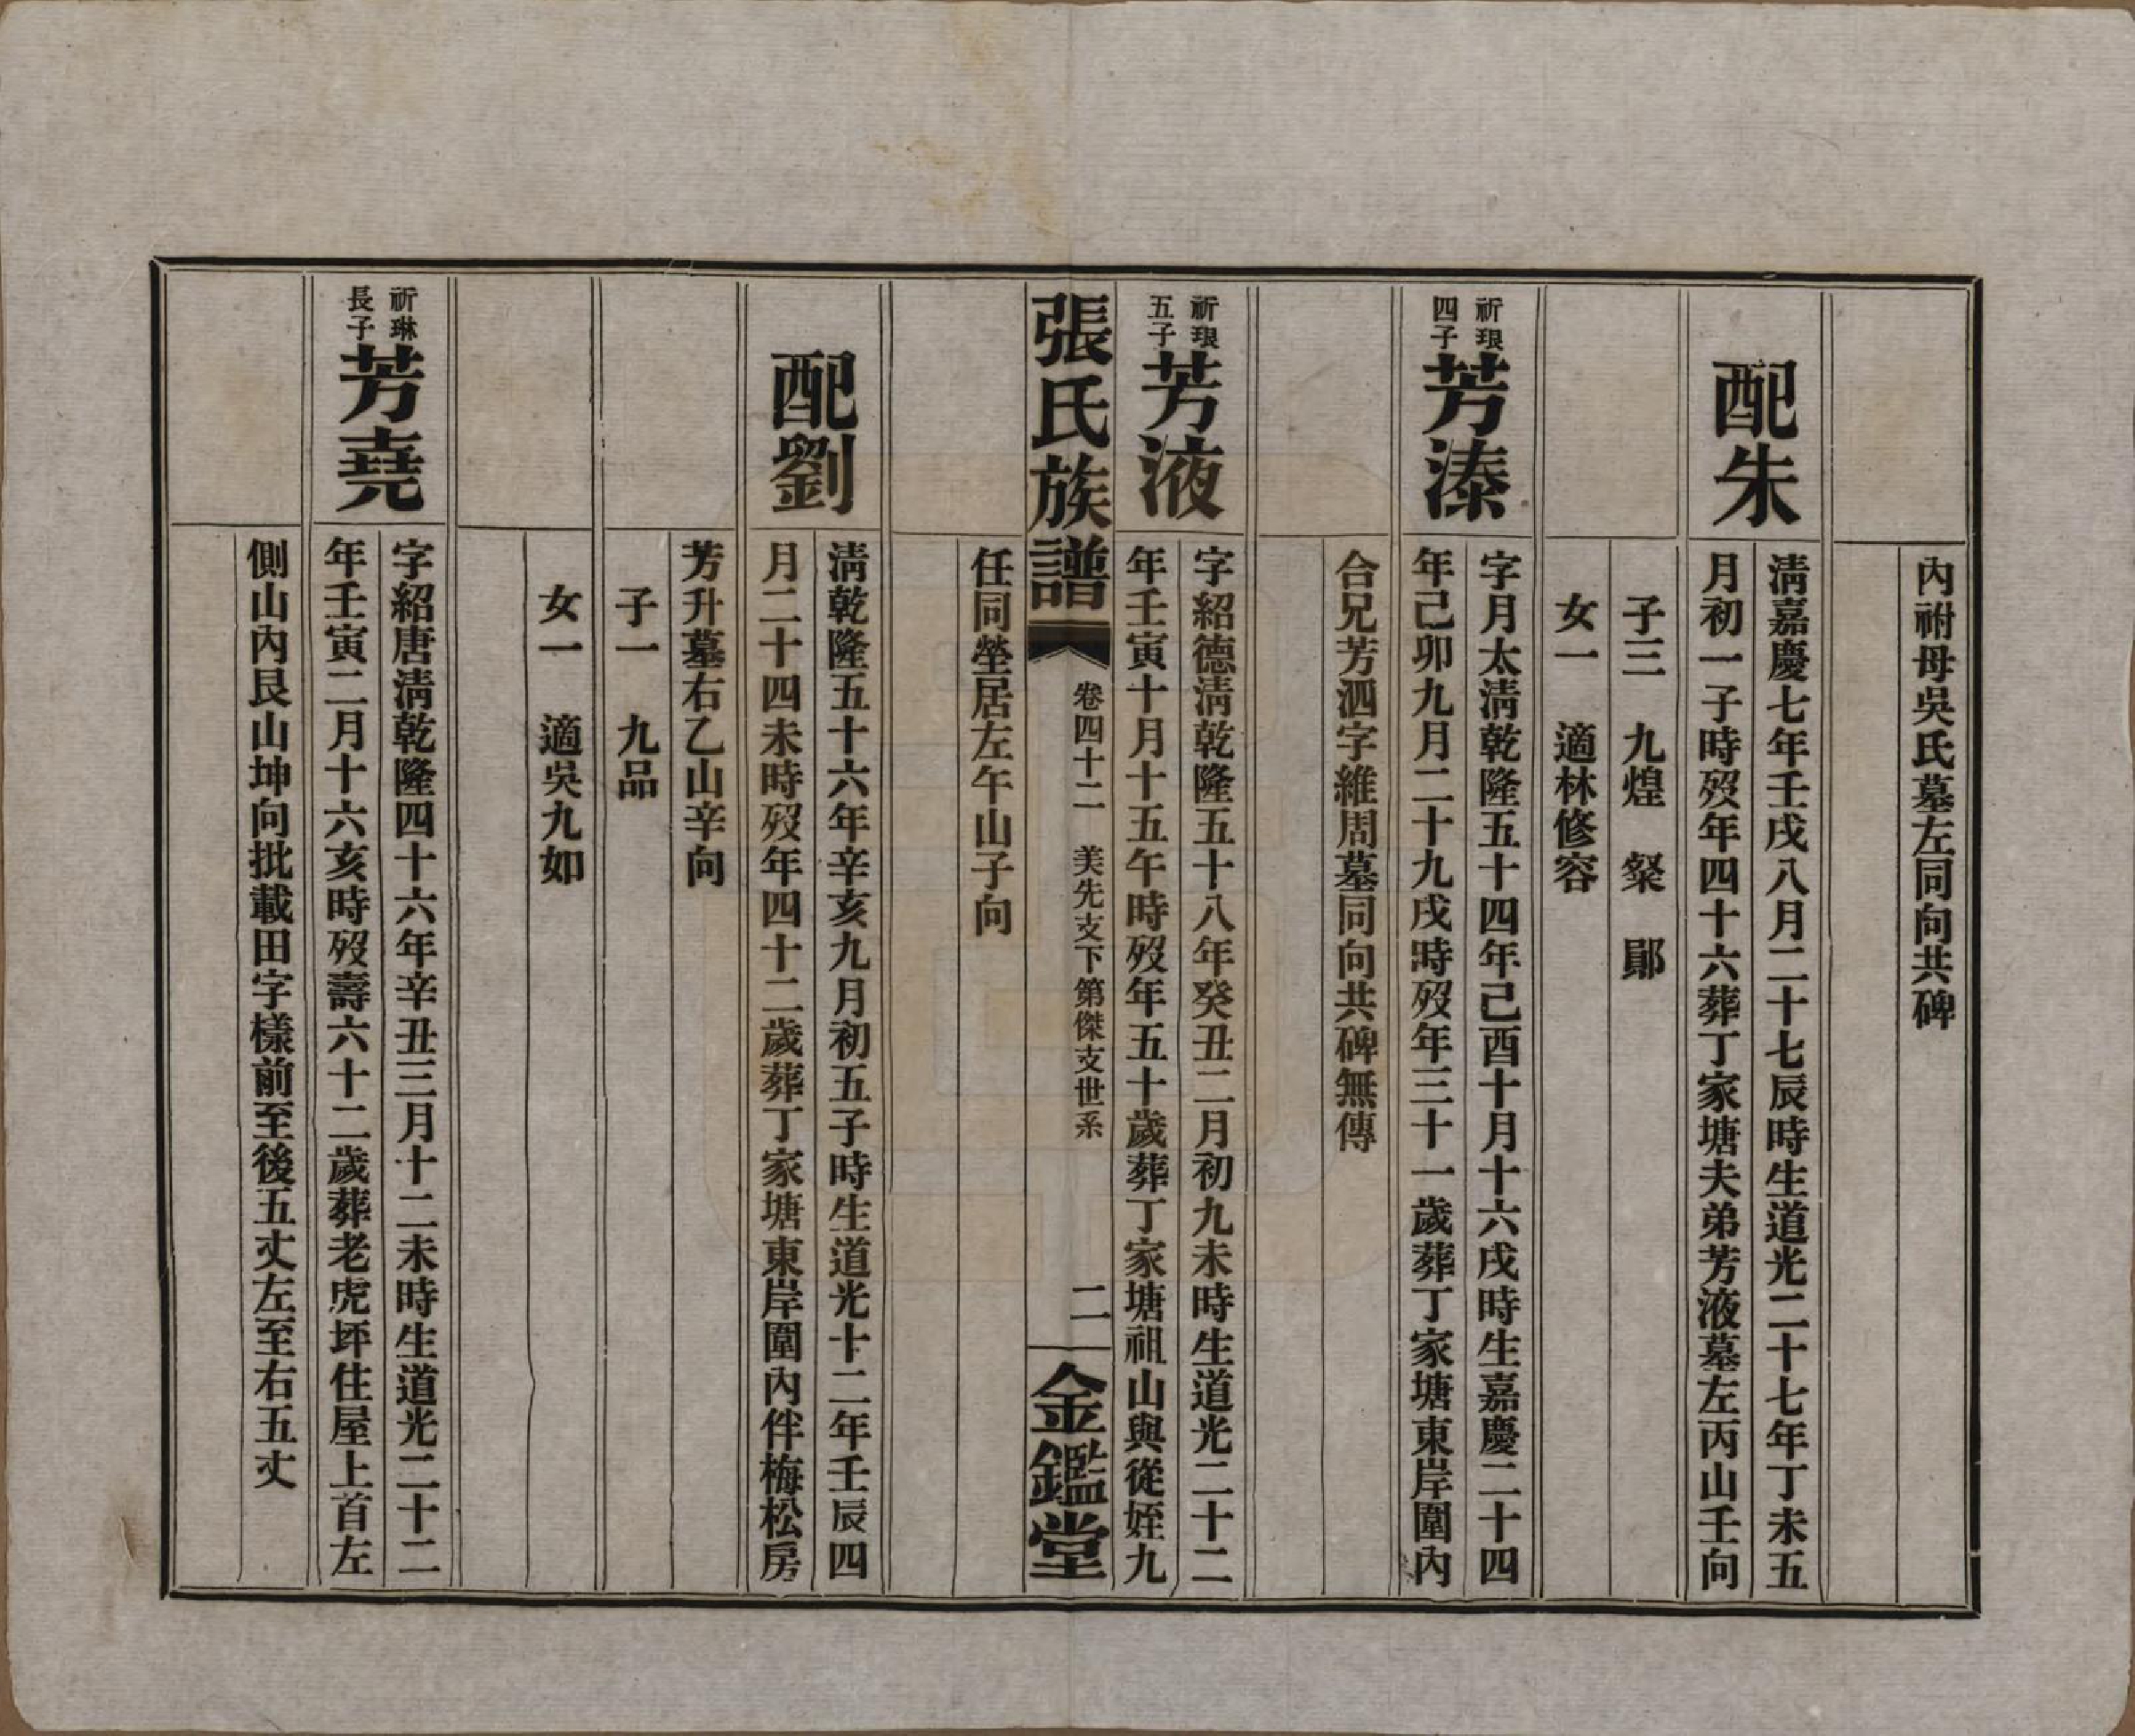 內祔母吳氏墓左同向共碑
配朱
淸嘉慶七年壬戌八月二十七辰時生道光二十七年丁未五
月初一子時歿年四十六葬丁家塘夫弟芳液墓左丙山壬向
子三　九煌　粲　郥
女一　適林修容
祈琅
四子
芳溱
字月太淸乾隆五十四年己酉十月十六戌時生嘉慶二十四
年己卯九月二十九戌時歿年三十一歲葬丁家塘東岸圍內
合兄芳泗字維周墓同向共碑無傳
祈琅
五子
芳液
字紹德淸乾隆五十八年癸丑二月初九未時生道光二十二
年壬寅十月十五午時歿年五十歲葬丁家塘祖山與從姪九
張氏族譜
卷四十二　美先支下第傑支世系
二
金鑑堂
任同塋居左午山子向
配劉
淸乾隆五十六年辛亥九月初五子時生道光十二年壬辰四
月二十四未時歿年四十二歲葬丁家塘東岸圍內伴梅松房
芳升墓右乙山辛向
子一　九品
女一　適吳九如
祈琳
長子
芳堯
字紹唐淸乾隆四十六年辛丑三月十二未時生道光二十二
年壬寅二月十六亥時歿壽六十二歲葬老虎坪住屋上首左
側山內艮山坤向批載田字樣前至後五丈左至右五丈